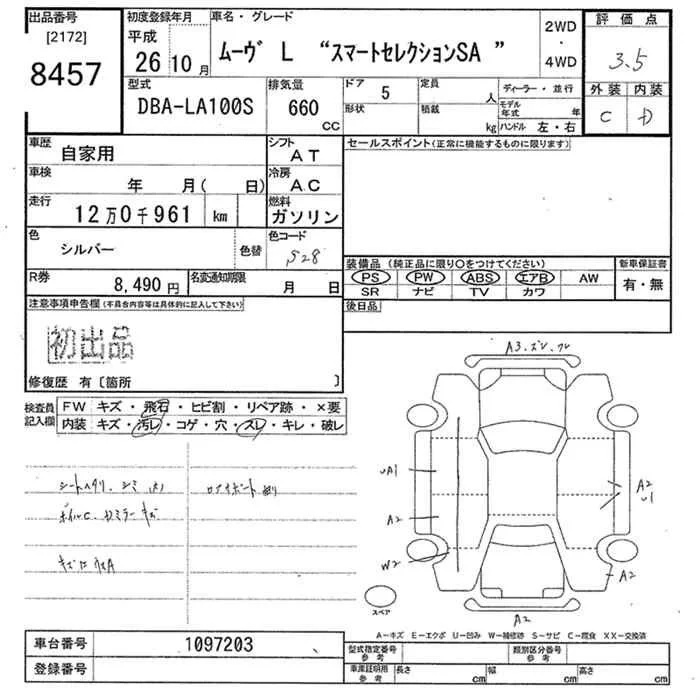 出品番号
[2172]
8457
初度登録年月
平成
26 10 月
車名・グレード
ムーヴ L “スマートセレクションSA ”
2WD
・
4WD
評価点
3.5
外装 内装
C D
型式
DBA-LA100S
排気量
660
CC
ドア 5
形状
定員 人
積載 kg
ディーラー・並行
モデル年式 年
ハンドル 左・右
車歴
自家用
シフト
AT
セールスポイント(正常に機能するものに限ります)
車検
年 月( 日)
冷房
AC
走行
12万0千961 km
燃料
ガソリン
色
シルバー
色替
色コード
S28
装備品 (純正品に限り○をつけてください)
PS PW ABS エアB AW
SR ナビ TV カワ
新車保証書
有・無
R券
8,490 円
名変通知期限
月 日
後日品
注意事項申告欄(不具合内容等は具体的に記入して下さい)
初出品
修復歴 有〔箇所 〕
検査員記入欄
FW キズ・飛石・ヒビ割・リペア跡・×要
内装 キズ・汚レ・コゲ・穴・スレ・キレ・破レ
シートヘタリ、シミ
ホイルC、Dミラーキズ
A3、ズレ、ワレ
UA1
A2
W2
A2
U1
A2
A2
スペア
A−キズ E−エクボ U−凹み W−補修跡 S−サビ C−腐食 XX−交換済
車台番号 1097203
登録番号
型式指定番号
参考
類別区分番号
参考
車庫証明用
参考
長さ cm 幅 cm 高さ cm